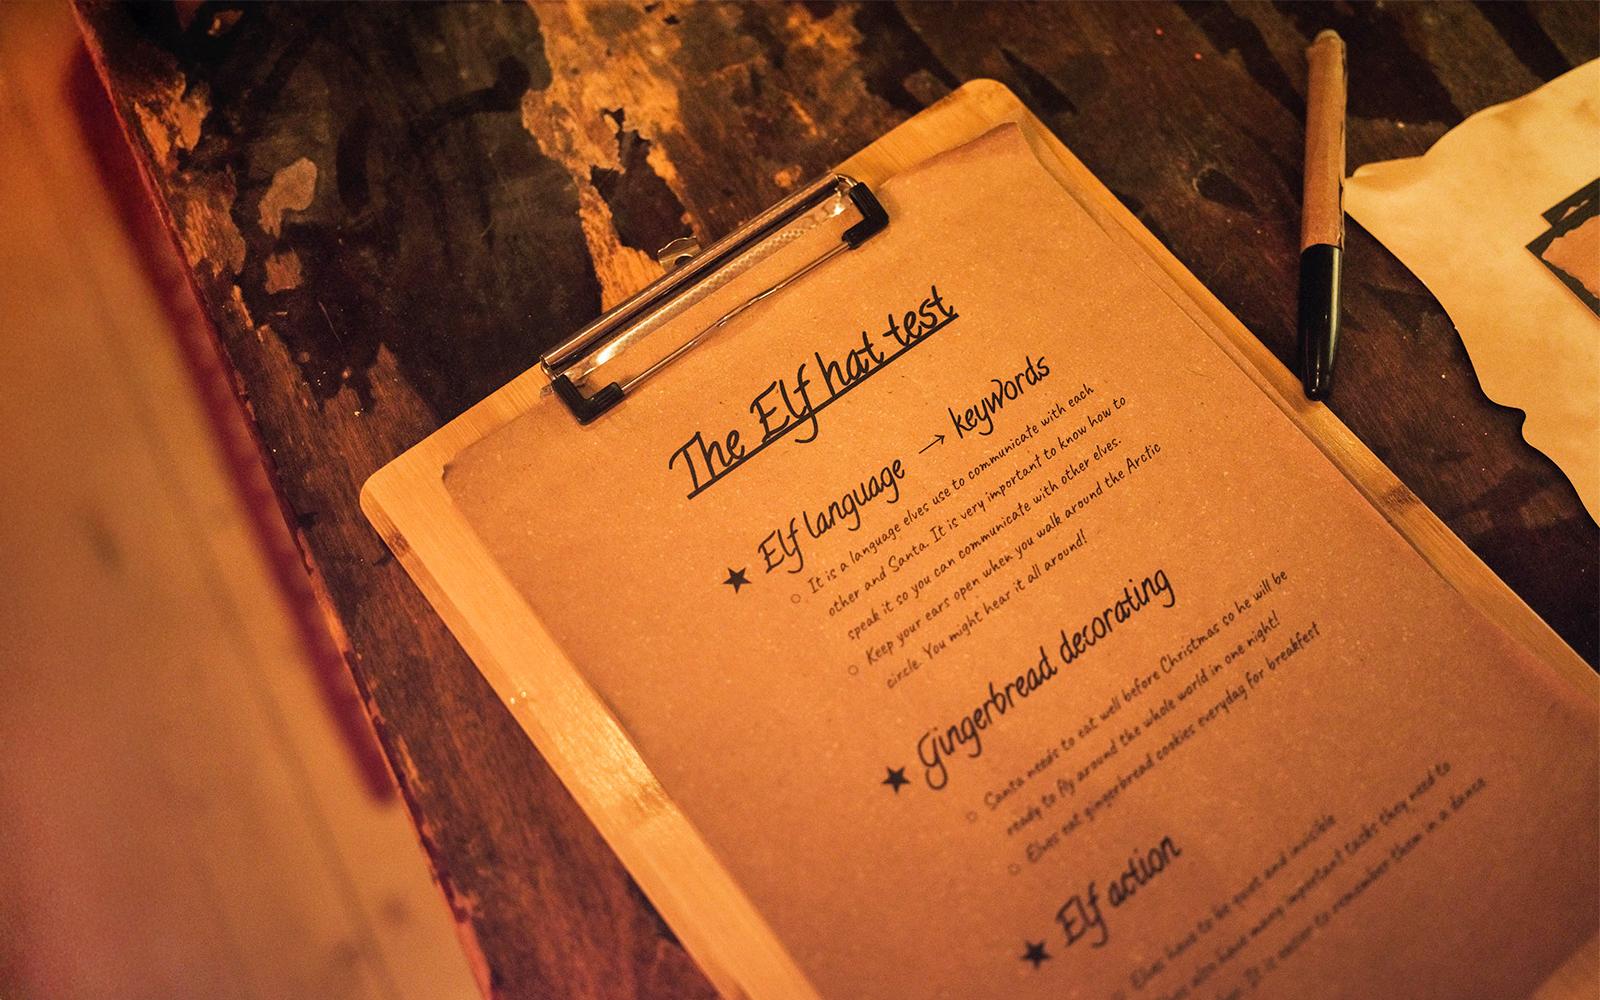 The Elf hat test
★ Elf language → keywords
○ It is a language elves use to communicate with each
other and Santa. It is very important to know how to
speak it so you can communicate with other elves.
○ Keep your ears open when you walk around the Arctic
circle. You might hear it all around!
★ Gingerbread decorating
○ Santa needs to eat well before Christmas so he will be
ready to fly around the whole world in one night!
○ Elves eat gingerbread cookies everyday for breakfast
★ Elf action
Elves have to be quiet and invisible
also have many important tasks they need to
It is easier to remember them in a dance